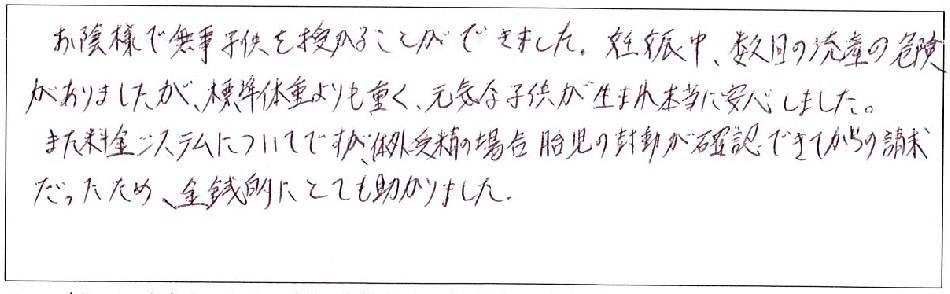 お陰様で無事子供を授かることができました。妊娠中、数回の流産の危険
がありましたが、標準体重よりも重く、元気な子供が生まれ本当に安心しました。
また料金システムについてですが、体外受精の場合胎児の鼓動が確認できてからの請求
だったため、金銭的にとても助かりました。